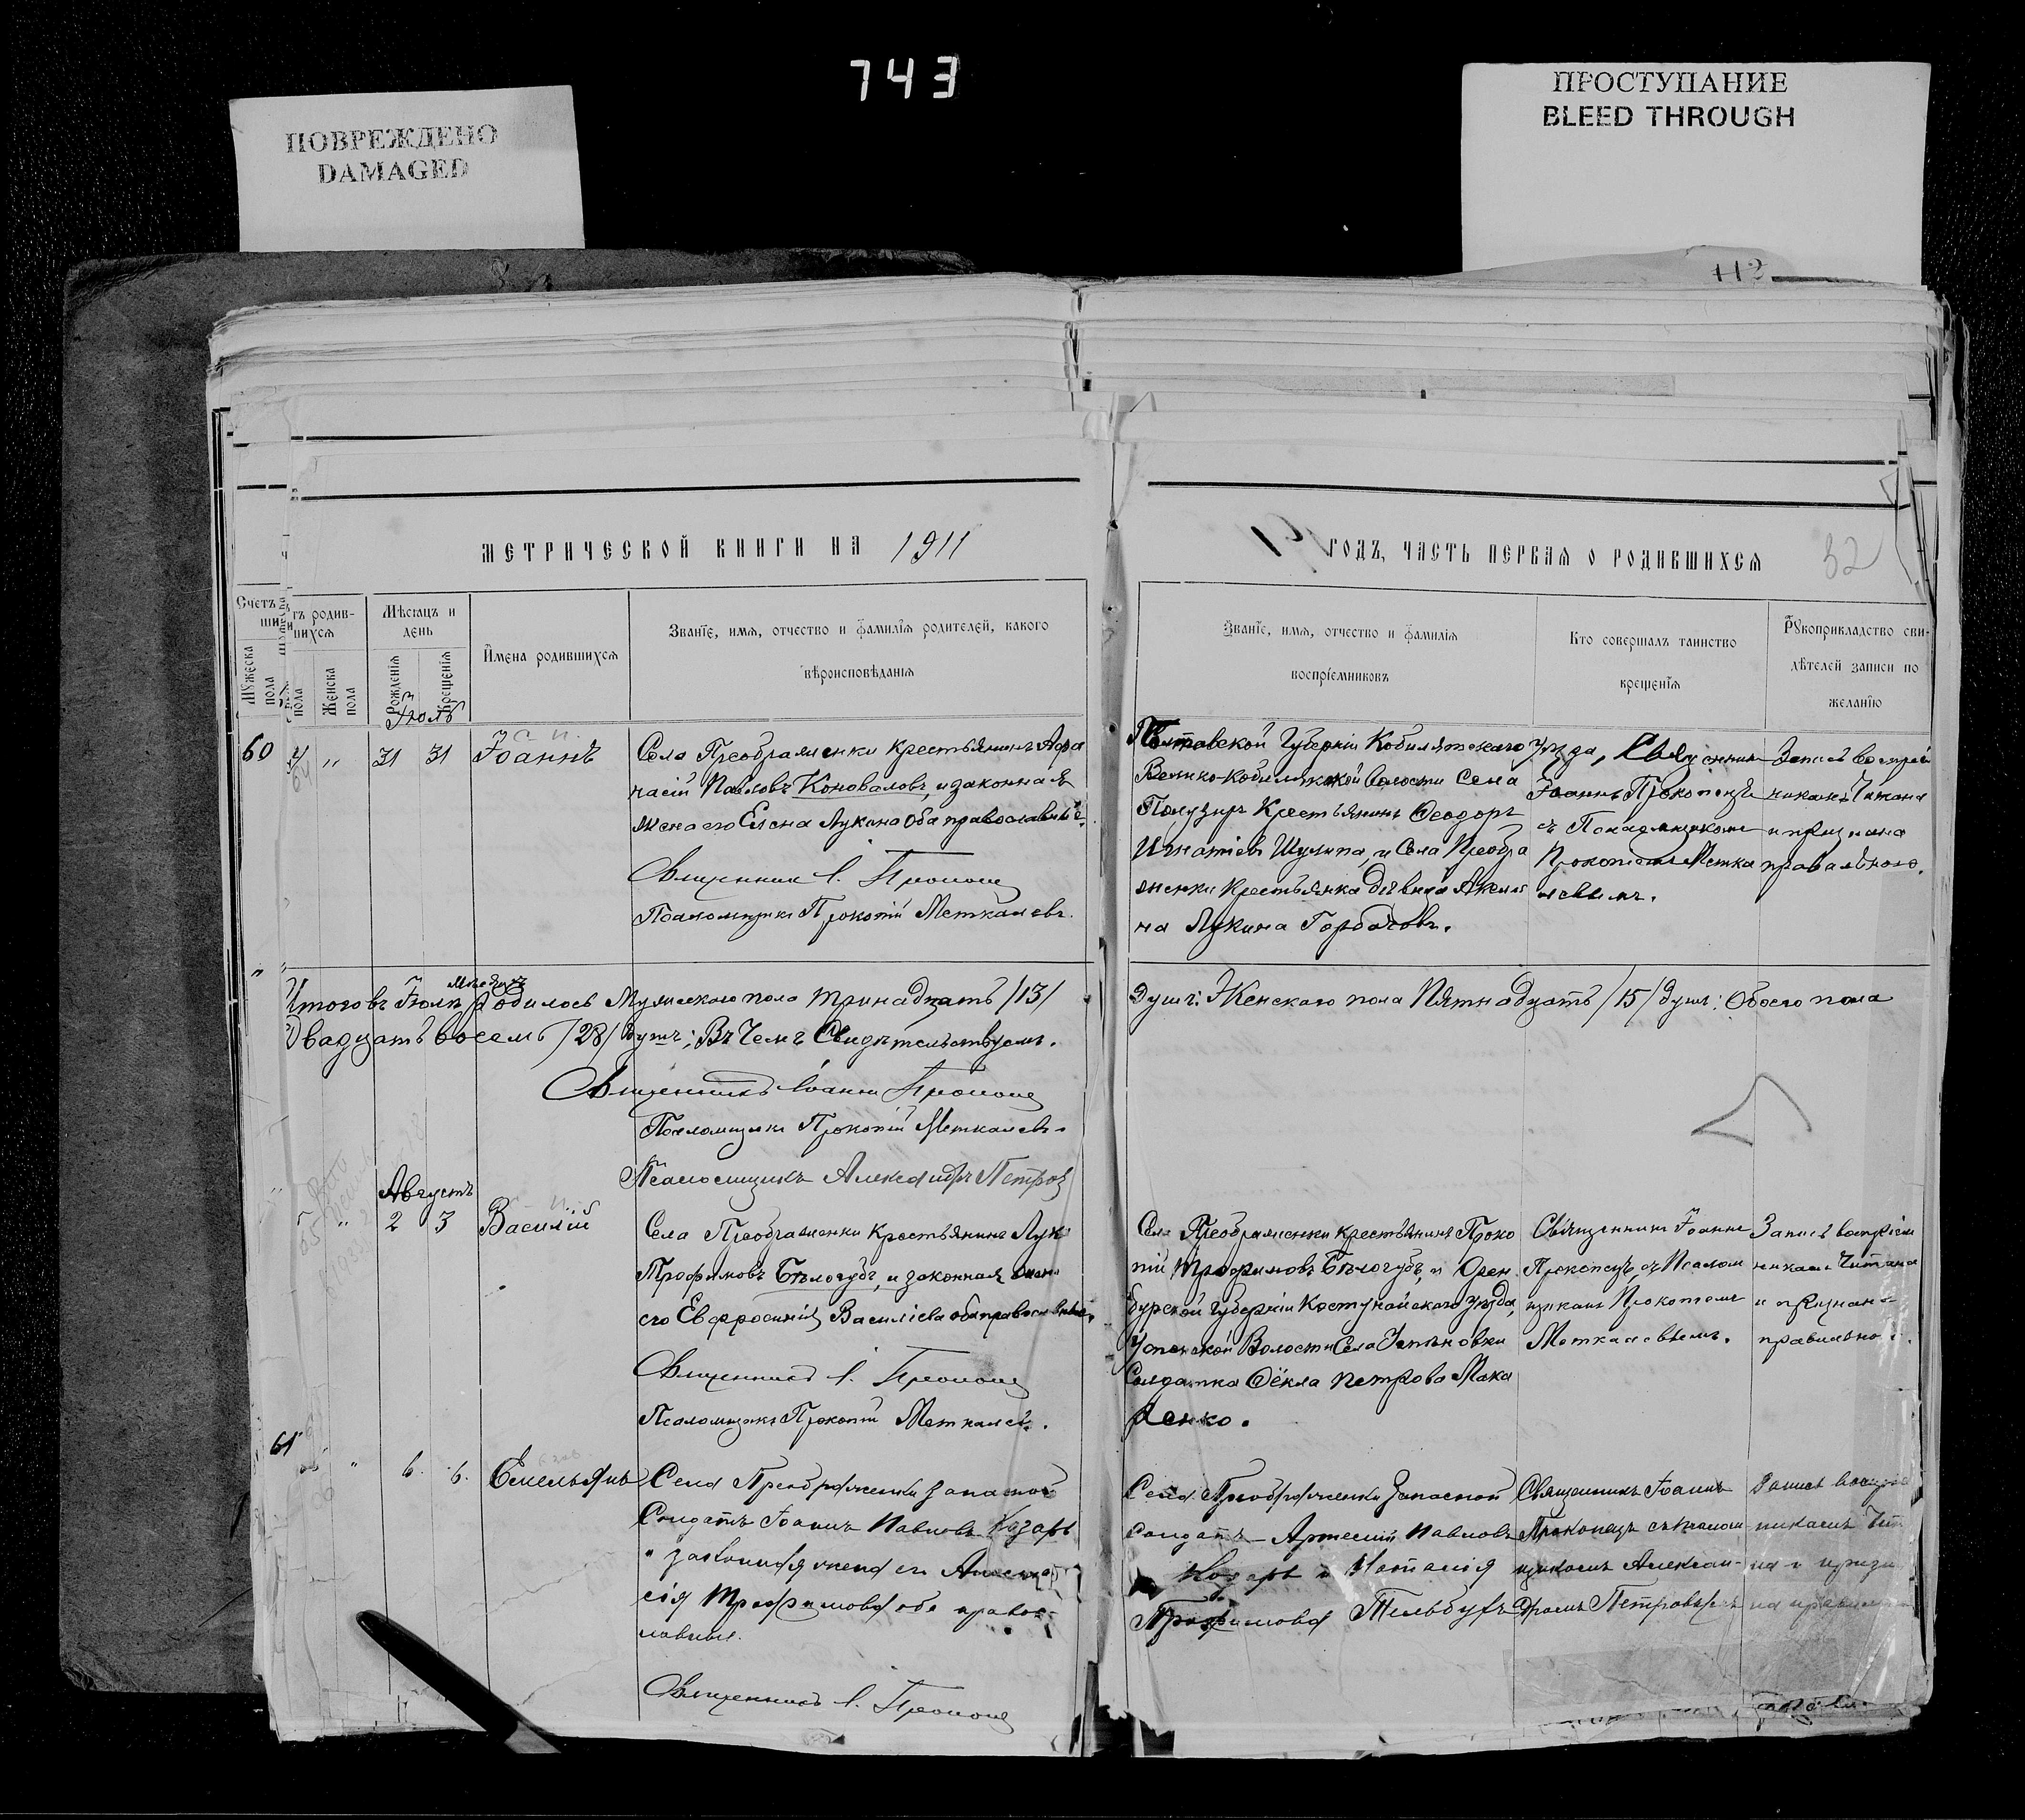 743
ПОВРЕЖДЕНО
DAMAGED
ПРОСТУПАНИЕ
BLEED THROUGH
112
МЕТРИЧЕСКОЙ КНИГИ НА 1911
ГОДЪ, ЧАСТЬ ПЕРВАЯ О РОДИВШИХСЯ
32
Счетъ
родив-
шихся
Мужеска пола
Женска пола
Мѣсяцъ и день
Рожденія
Крещенія
Имена родившихся
Званіе, имя, отчество и фамилія родителей, какого
вѣроисповѣданія
Званіе, имя, отчество и фамилія
воспріемниковъ
Кто совершалъ таинство
крещенія
Рукоприкладство сви-
дѣтелей записи по
желанію
Іюль
60
"
31 31
Іоаннъ
Села Преображенки Крестьянинъ Афа
насій Павловъ Коноваловъ, и законная
жена его Елена Лукина оба православные.
Священникъ І. Прокопецъ
Псаломщикъ Прокопій Меткалевъ.
Полтавской Губерніи Кобилятскаго уѣзда,
Велико-Кобиляткой волости Села
Крестьянинъ Феодоръ
Игнатіевъ Шулипа, и Села Преобра
женки Крестьянка дѣвица Акили
на Лукина Горбачовъ.
Священникъ
Іоаннъ Прокопецъ
съ Псаломщикомъ
Прокопіемъ Метка
левымъ.
Запись воспріем
никамъ Читана
и признана
правильною.
Итого въ Іюлѣ мѣсяцѣ родилось Мужескаго пола тринадцать /13/
душъ: Женскаго пола Пятнадцать /15/ душъ: Обоего пола
Двадцать восемь /28/ душъ; Въ Чемъ Свидѣтельствуемъ.
Священникъ Іоаннъ Прокопецъ
Псаломщикъ Прокопій Меткалевъ.
Псаломщикъ Александръ Петровъ
Августъ
"
2 3
Василій
Села Преображенки Крестьянинъ Лука
Трофимовъ Бѣлогубъ, и законная жена
его Евфросинія Василіева оба православные.
Священникъ І. Прокопецъ
Псаломщикъ Прокопій Меткалевъ.
Села Преображенки Крестьянинъ Проко
пій Трофимовъ Бѣлогубъ, и Орен
бурской губерніи Костунайскаго уѣзда,
Успенской Волости Села
Солдатка Фёкла Петрова Мака
ренко.
Священникъ Іоаннъ
Прокопецъ, съ Псалом
щикомъ Прокопіемъ
Меткалевымъ.
Запись воспріем
никамъ Читана
и признана
правильною.
61
"
6. 6.
Емельянъ
Села Преображенки запасной
Солдатъ Іоаннъ Павловъ Козарь
и законная жена его Анаста
сія Трофимова оба правос-
лавные.
Священникъ І. Прокопецъ
Села Преображенки Запасной
Солдатъ Артемій Павловъ
Козарь и Наталія
Трофимова
Священникъ Іоаннъ
Прокопецъ съ псалом
щикомъ Алексан-
дромъ Петровымъ
Запись воспріем
никамъ Чит
на и призн
на правильн